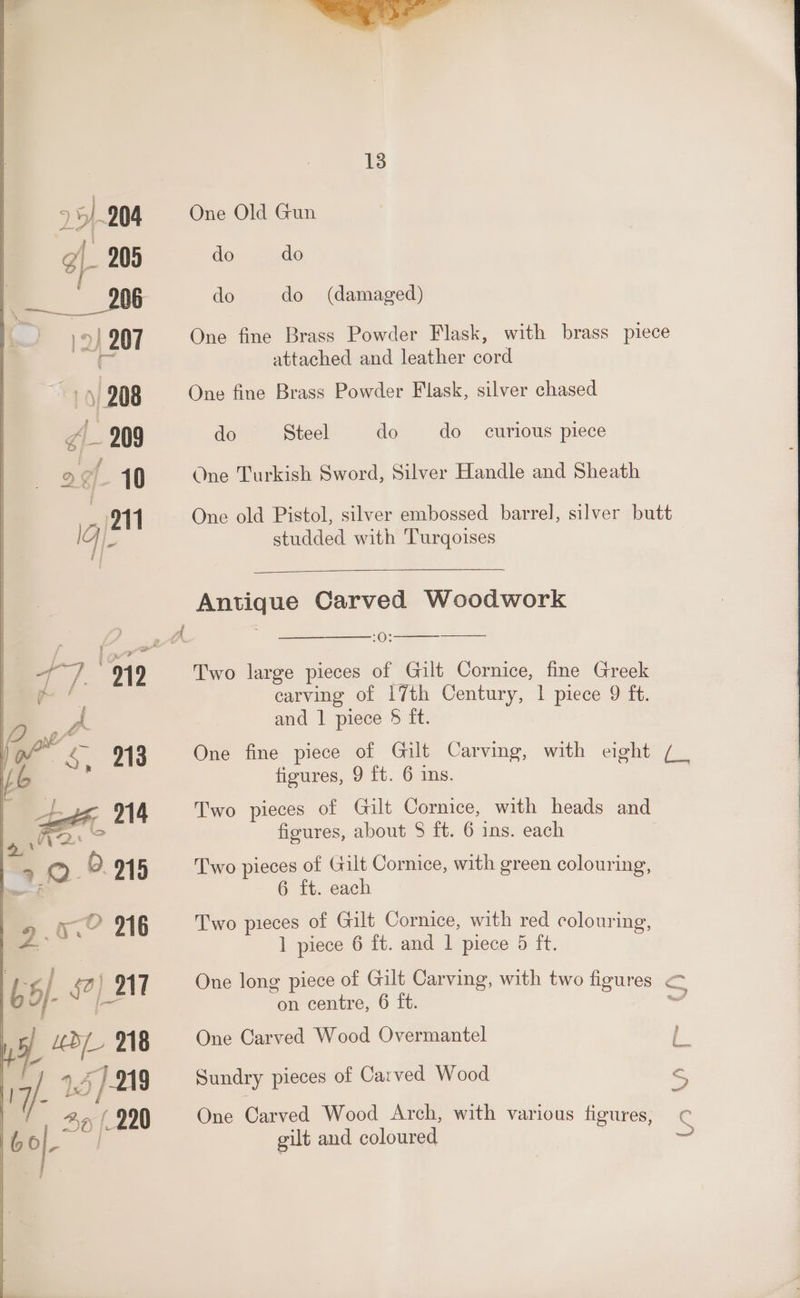 13
25/- 204 One Old Gun
8/- 205 do do
206 do do (damaged)
19/ 207 One fine Brass Powder Flask, with brass piece
attached and leather cord
208 One fine Brass Powder Flask, silver chased
209 do Steel do do curious piece
10 One Turkish Sword, Silver Handle and Sheath
211 One old Pistol, silver embossed barrel, silver butt
studded with Turqoises
Antique Carved Woodwork
:O:
212 Two large pieces of Gilt Cornice, fine Greek
carving of 17th Century, 1 piece 9 ft.
and 1 piece 8 ft.
213 One fine piece of Gilt Carving, with eight
figures, 9 ft. 6 ins.
214 Two pieces of Gilt Cornice, with heads and
figures, about 8 ft. 6 ins. each
215 Two pieces of Gilt Cornice, with green colouring,
6 ft. each
216 Two pieces of Gilt Cornice, with red colouring,
1 piece 6 ft. and 1 piece 5 ft.
217 One long piece of Gilt Carving, with two figures
on centre, 6 ft.
218 One Carved Wood Overmantel
219 Sundry pieces of Carved Wood
220 One Carved Wood Arch, with various figures,
gilt and coloured